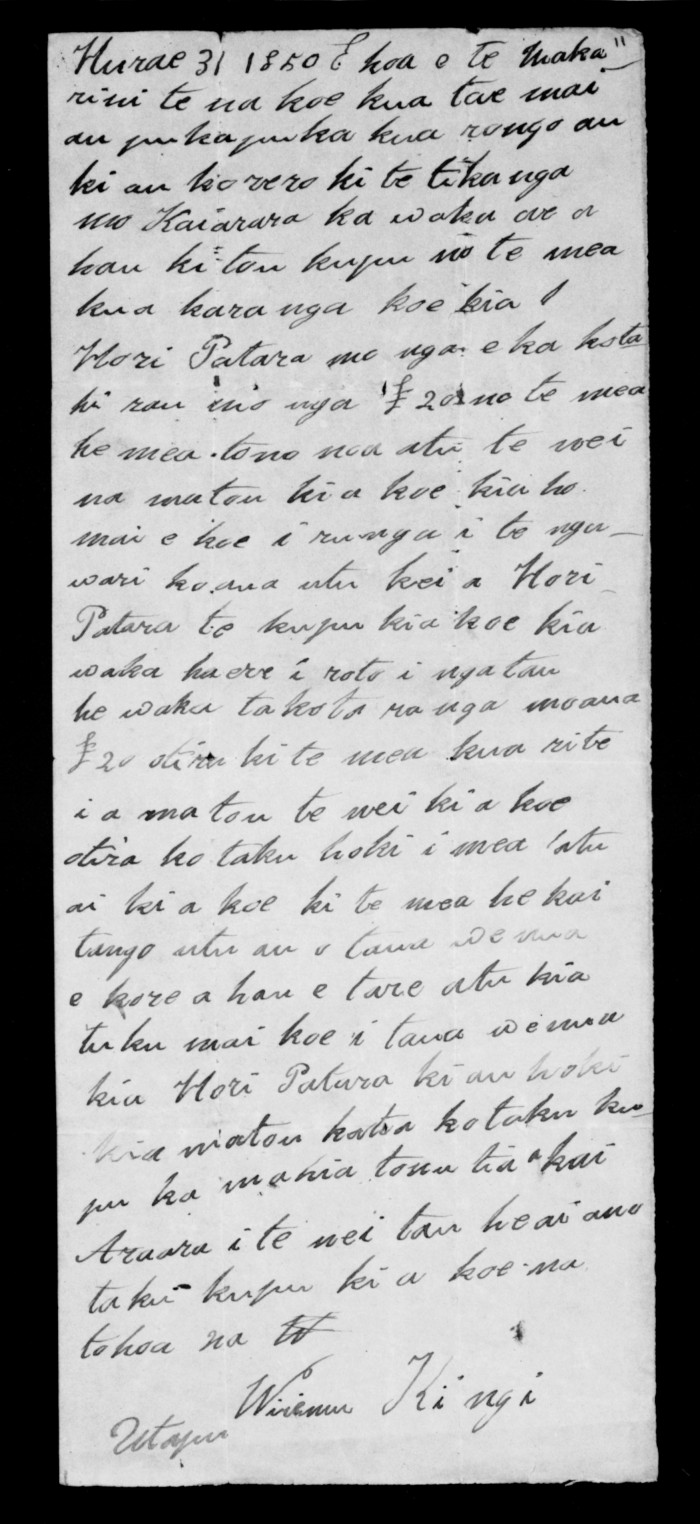 Hurae 31 1850 E hoa e te Maka"
rini te na koe kua tae mai
au pukapuka kua rongo au
ki au korero ki te tikanga
mo Kaiarara ka waka ae a
hau ki tou kupu no te mea
kua karanga koe kia
Hori Patara mo nga eka kota
hi rau mo nga £20 no te mea
he mea tono noa atu te nei
na matou ki a koe kia ho
mai e koe i runga i te nga-
wari ko ana utu kei a Hori
Patara te kupu kia koe kia
waka haere i roto i nga tau
he waka takoto ranga moana
£20 otira ki te mea kua rite
i a matou te nei ki a koe
otira ko taku hoki i mea atu
ai ki a koe ki te mea he kai
tango utu au o taua wenua
e kore a hau e tare atu kia
tuku mai koe i taua wenua
kia Hori Patara ki au hoki
kia matou katoa ko taku ku-
pu ka mahia tonu tia kai
Araara i te nei tau he ai ano
taku kupu ki a koe na
to hoa na
Wiremu Kingi
Utapu